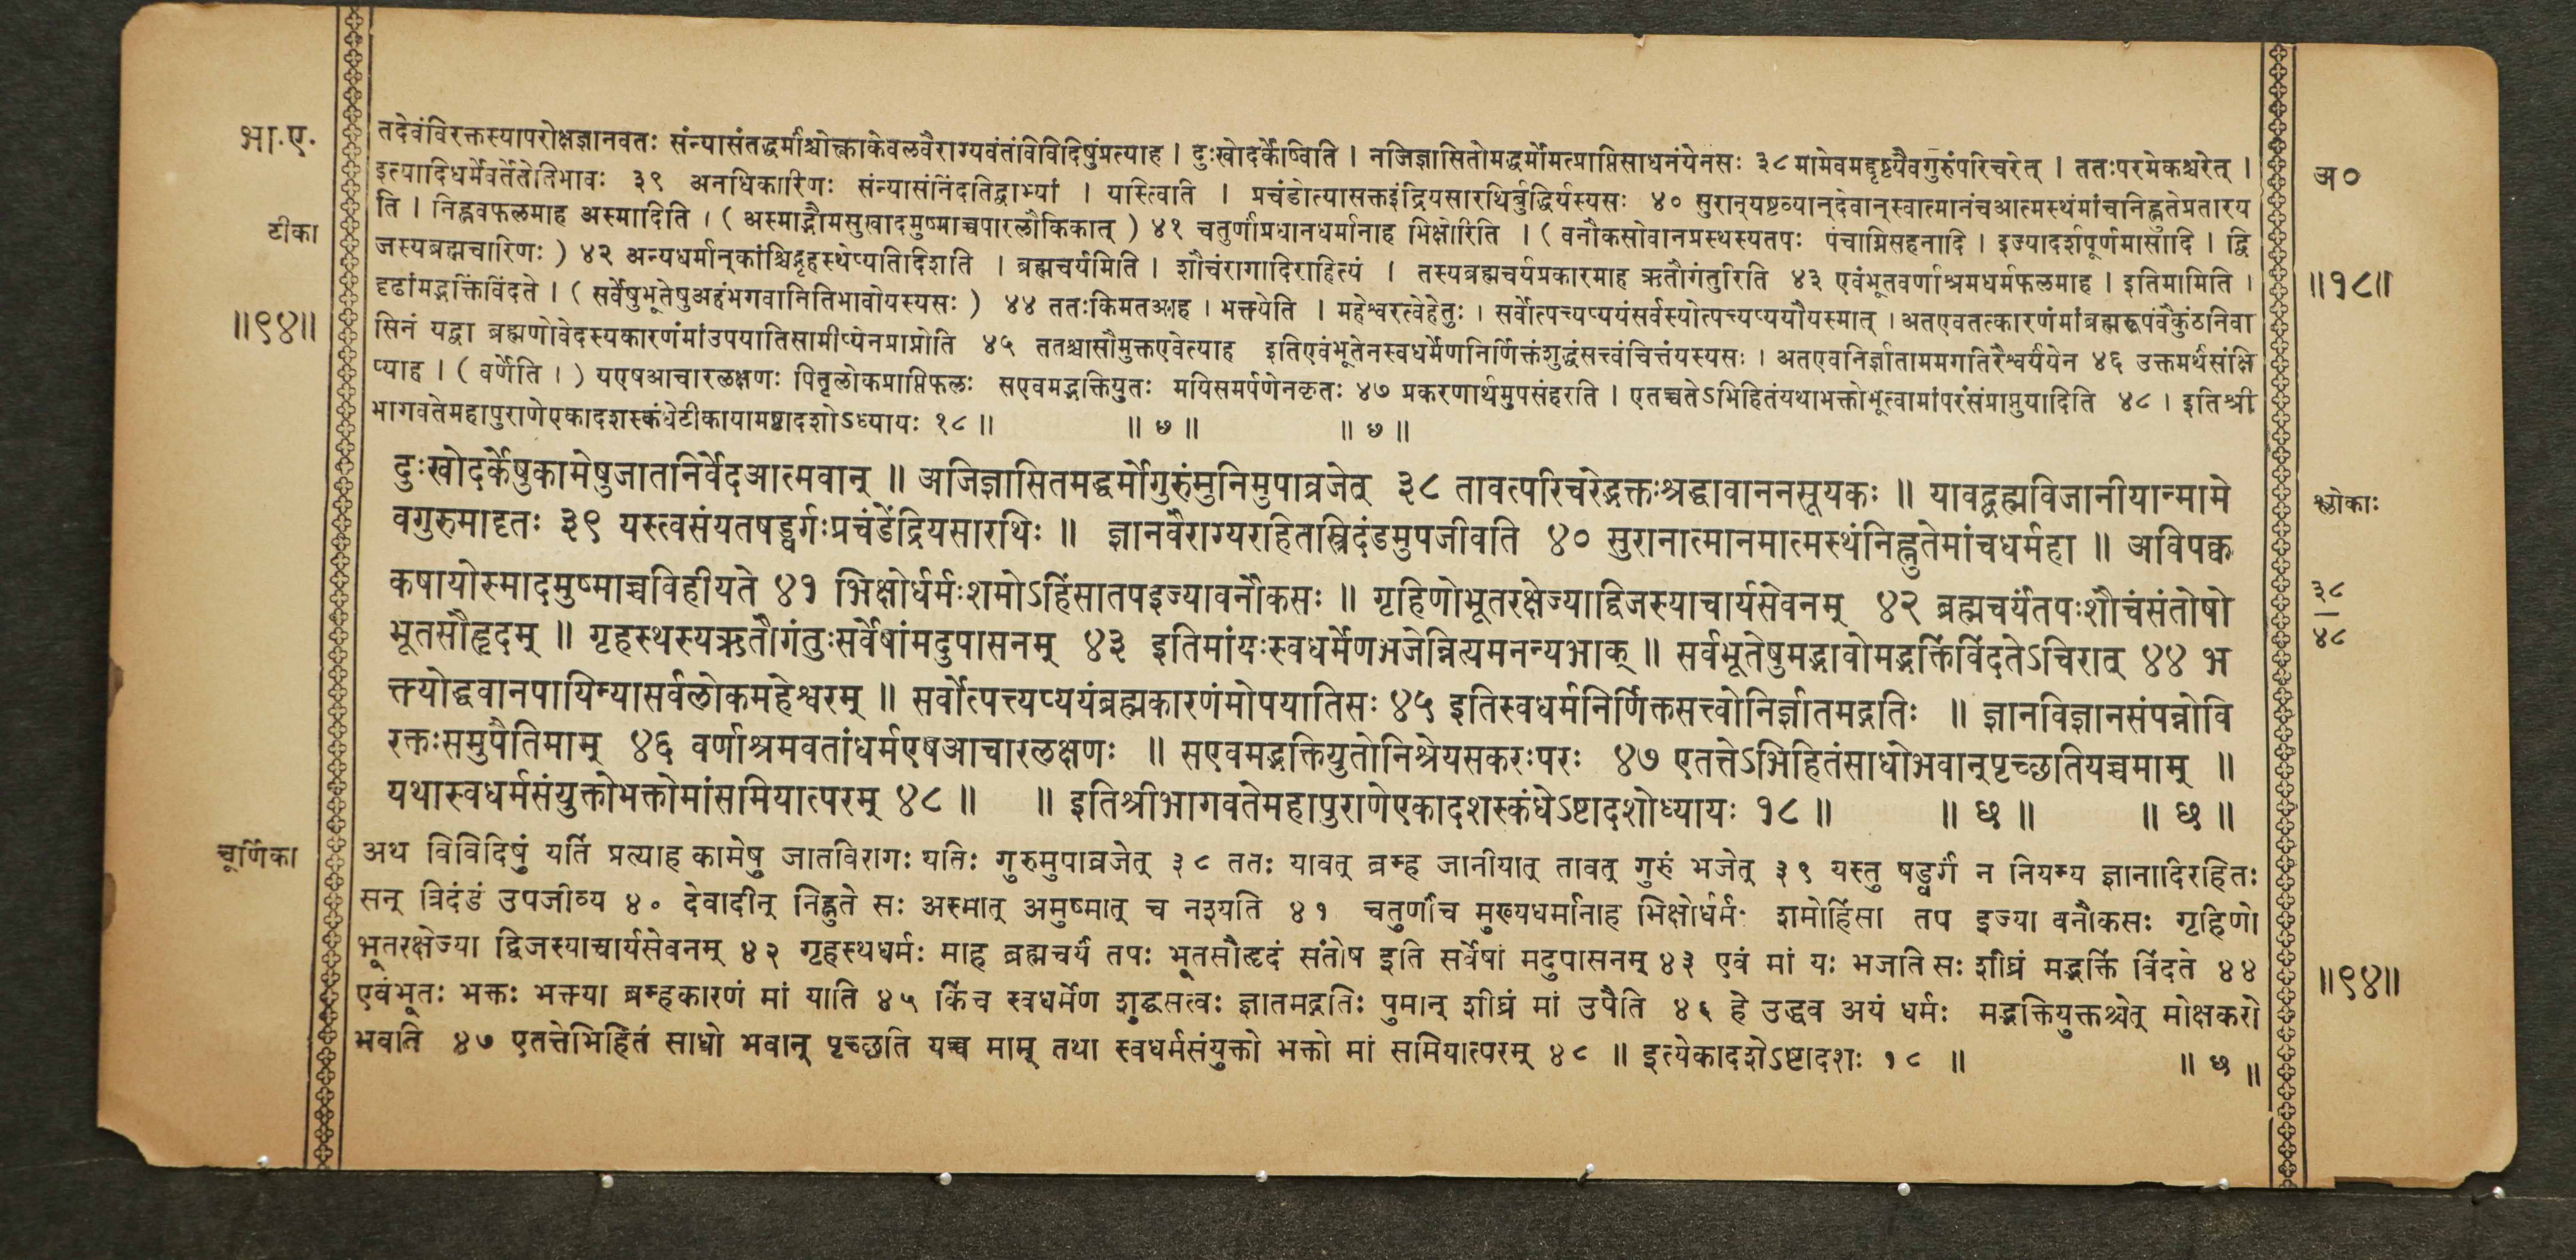 भा.ए.
तदेवंविरक्तस्यापरोक्षज्ञानवतः संन्यासंतद्धर्मांश्चोक्त्वाकेवलवैराग्यवंतंविविदिषुंप्रत्याह । दुःखोदर्केष्विति । नजिज्ञासितोमद्धर्मोमत्प्राप्तिसाधनंयेनसः ३८ मामेवमद्दृष्ट्यैवगुरुंपरिचरेत् । ततःपरमेकश्चरेत् ।
अ०
इत्यादिधर्मेर्वर्तेतेतिभावः ३९ अनधिकारिणः संन्यासंनिंदतिद्वाभ्यां । यस्त्विति । प्रचंडोत्यासक्तइंद्रियसारथिर्बुद्धिर्यस्यसः ४० सुरान्यष्टव्यान्देवान्स्वात्मानंचआत्मस्थंमांचनिह्नुतेप्रतारय
टीका
ति । निह्नवफलमाह अस्मादिति । ( अस्माद्भौमसुखादमुष्माच्चपारलौकिकात् ) ४१ चतुर्णांप्रधानधर्मानाह भिक्षोरिति । ( वनौकसोवानप्रस्थस्यतपः पंचाग्निसहनादि । इज्यादर्शपूर्णमासादि । द्वि
जस्यब्रह्मचारिणः ) ४२ अन्यधर्मान्कांश्चिद्गृहस्थेप्यतिदिशति । ब्रह्मचर्यमिति । शौचंरागादिराहित्यं । तस्यब्रह्मचर्यप्रकारमाह ऋतौगंतुरिति ४३ एवंभूतवर्णाश्रमधर्मफलमाह । इतिमामिति ।
॥१८॥
दृढांमद्भक्तिंविंदते । ( सर्वेषुभूतेषुअहंभगवानितिभावोयस्यसः ) ४४ ततःकिमतआह । भक्त्येति । महेश्वरत्वेहेतुः । सर्वोत्पत्त्यप्ययंसर्वस्योत्पत्त्यप्ययौयस्मात् । अतएवतत्कारणंमांब्रह्मरूपंवैकुंठनिवा
॥९४॥
सिनं यद्वा ब्रह्मणोवेदस्यकारणंमांउपयातिसामीप्येनप्राप्नोति ४५ ततश्चासौमुक्तएवेत्याह इतिएवंभूतेनस्वधर्मेणनिर्णिक्तंशुद्धंसत्त्वंचित्तंयस्यसः । अतएवनिर्ज्ञाताममगतिरैश्वर्यंयेन ४६ उक्तमर्थंसंक्षि
प्याह । ( वर्णेति । ) यएषआचारलक्षणः पितृलोकप्राप्तिफलः सएवमद्भक्तियुतः मयिसमर्पणेनकृतः ४७ प्रकरणार्थमुपसंहरति । एतच्चतेऽभिहितंयथाभक्तोभूत्वामांपरंसंप्राप्नुयादिति ४८ । इतिश्री
भागवतेमहापुराणेएकादशस्कंधेटीकायामष्टादशोऽध्यायः १८ ॥ ॥ ७ ॥ ॥ ७ ॥
दुःखोदर्केषुकामेषुजातनिर्वेदआत्मवान् ॥ अजिज्ञासितमद्धर्मोगुरुंमुनिमुपाव्रजेत् ३८ तावत्परिचरेद्भक्तःश्रद्धावाननसूयकः ॥ यावद्ब्रह्मविजानीयान्मामे
श्लोकाः
वगुरुमादृतः ३९ यस्त्वसंयतषड्वर्गःप्रचंडेंद्रियसारथिः ॥ ज्ञानवैराग्यरहितस्त्रिदंडमुपजीवति ४० सुरानात्मानमात्मस्थंनिह्नुतेमांचधर्महा ॥ अविपक्व
कषायोस्मादमुष्माच्चविहीयते ४१ भिक्षोर्धर्मःशमोऽहिंसातपइज्यावनौकसः ॥ गृहिणोभूतरक्षेज्याद्विजस्याचार्यसेवनम् ४२ ब्रह्मचर्यंतपःशौचंसंतोषो
३८
४८
भूतसौहृदम् ॥ गृहस्थस्यऋतौगंतुःसर्वेषांमदुपासनम् ४३ इतिमांयःस्वधर्मेणभजेन्नित्यमनन्यभाक् ॥ सर्वभूतेषुमद्भावोमद्भक्तिंविंदतेऽचिरात् ४४ भ
क्त्योद्धवानपायिन्यासर्वलोकमहेश्वरम् ॥ सर्वोत्पत्त्यप्ययंब्रह्मकारणंमोपयातिसः ४५ इतिस्वधर्मनिर्णिक्तसत्त्वोनिर्ज्ञातमद्गतिः ॥ ज्ञानविज्ञानसंपन्नोवि
रक्तःसमुपैतिमाम् ४६ वर्णाश्रमवतांधर्मएषआचारलक्षणः ॥ सएवमद्भक्तियुतोनिश्रेयसकरःपरः ४७ एतत्तेऽभिहितंसाधोभवान्पृच्छतियच्चमाम् ॥
यथास्वधर्मसंयुक्तोभक्तोमांसमियात्परम् ४८ ॥ ॥ इतिश्रीभागवतेमहापुराणेएकादशस्कंधेऽष्टादशोध्यायः १८ ॥ ॥ छ ॥ ॥ छ ॥
चूर्णिका
अथ विविदिषुं यतिं प्रत्याह कामेषु जातविरागः यतिः गुरुमुपाव्रजेत् ३८ ततः यावत् ब्रम्ह जानीयात् तावत् गुरुं भजेत् ३९ यस्तु षड्वर्गं न नियम्य ज्ञानादिरहितः
सन् त्रिदंडं उपजीव्य ४० देवादीन् निह्नुते सः अस्मात् अमुष्मात् च नश्यति ४१ चतुर्णांच मुख्यधर्मानाह भिक्षोर्धर्मः शमोहिंसा तप इज्या वनौकसः गृहिणो
भूतरक्षेज्या द्विजस्याचार्यसेवनम् ४२ गृहस्थधर्मः माह ब्रह्मचर्यं तपः भूतसौहृदं संतोष इति सर्वेषां मदुपासनम् ४३ एवं मां यः भजति सः शीघ्रं मद्भक्तिं विंदते ४४
एवंभूतः भक्तः भक्त्या ब्रम्हकारणं मां याति ४५ किंच स्वधर्मेण शुद्धसत्वः ज्ञातमद्गतिः पुमान् शीघ्रं मां उपैति ४६ हे उद्धव अयं धर्मः मद्भक्तियुक्तश्चेत् मोक्षकरो
॥९४॥
भवति ४७ एतत्तेभिहितं साधो भवान् पृच्छति यच्च माम् तथा स्वधर्मसंयुक्तो भक्तो मां समियात्परम् ४८ ॥ इत्येकादशेऽष्टादशः १८ ॥ ॥ छ ॥